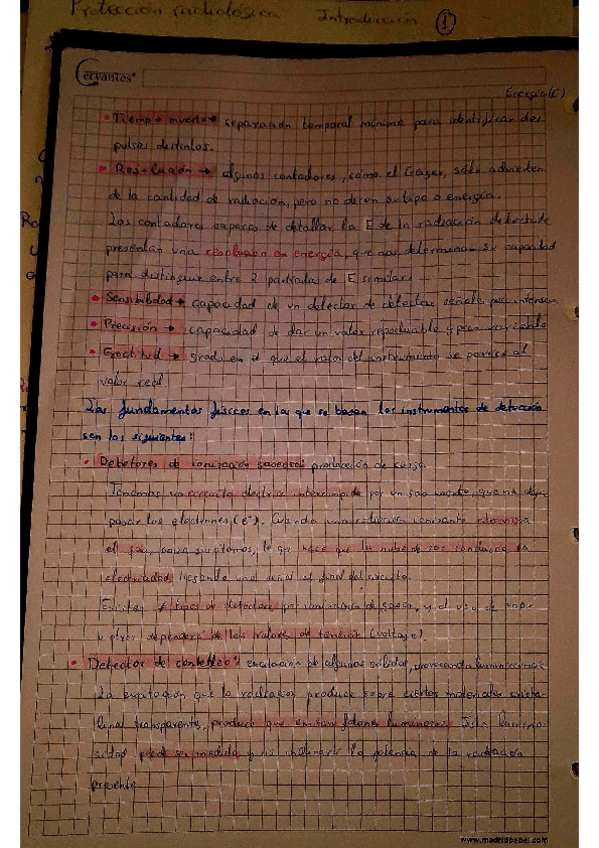 Protección radiológica Introducción ①
Cervantes
Energía (E)
• Tiempo muerto → separación temporal mínima para identificar dos
pulsos distintos.
• Resolución → algunos contadores, como el Geiger, sólo advierten
de la cantidad de radiación, pero no dicen su tipo o energía.
Los contadores capaces de detallar la E de la radiación detectada
presentan una resolución en energía, que nos determina su capacidad
para distinguir entre 2 partículas de E similar.
• Sensibilidad → capacidad de un detector de detectar señales poco intensas
• Precisión → capacidad de dar un valor repetible y poco variable
• Exactitud → grado en el que el valor del instrumento se parece al
valor real.
Los fundamentos físicos en los que se basan los instrumentos de detección
son los siguientes:
• Detectores de ionización gaseosa: producción de carga.
Tenemos un circuito eléctrico interrumpido por un gas que no deja
pasar los electrones (e⁻). Cuando una radiación ionizante
el gas, lo que hace que la nube de gas conduzca la
electricidad, una señal al final del circuito.
Existen ≠ tipos de detectores por ionización de gases, y el uso de unos
u otros dependerá de los valores de tensión (voltaje).
• Detector de centelleo: excitación de algunos sólidos, provocando luminiscencia
La excitación que la radiación produce sobre ciertos materiales crista-
linos transparentes, produce que emitan fotones luminosos. Esta lumino-
sidad puede ser medida y la potencia de la radiación
presente
www.madridpapel.com